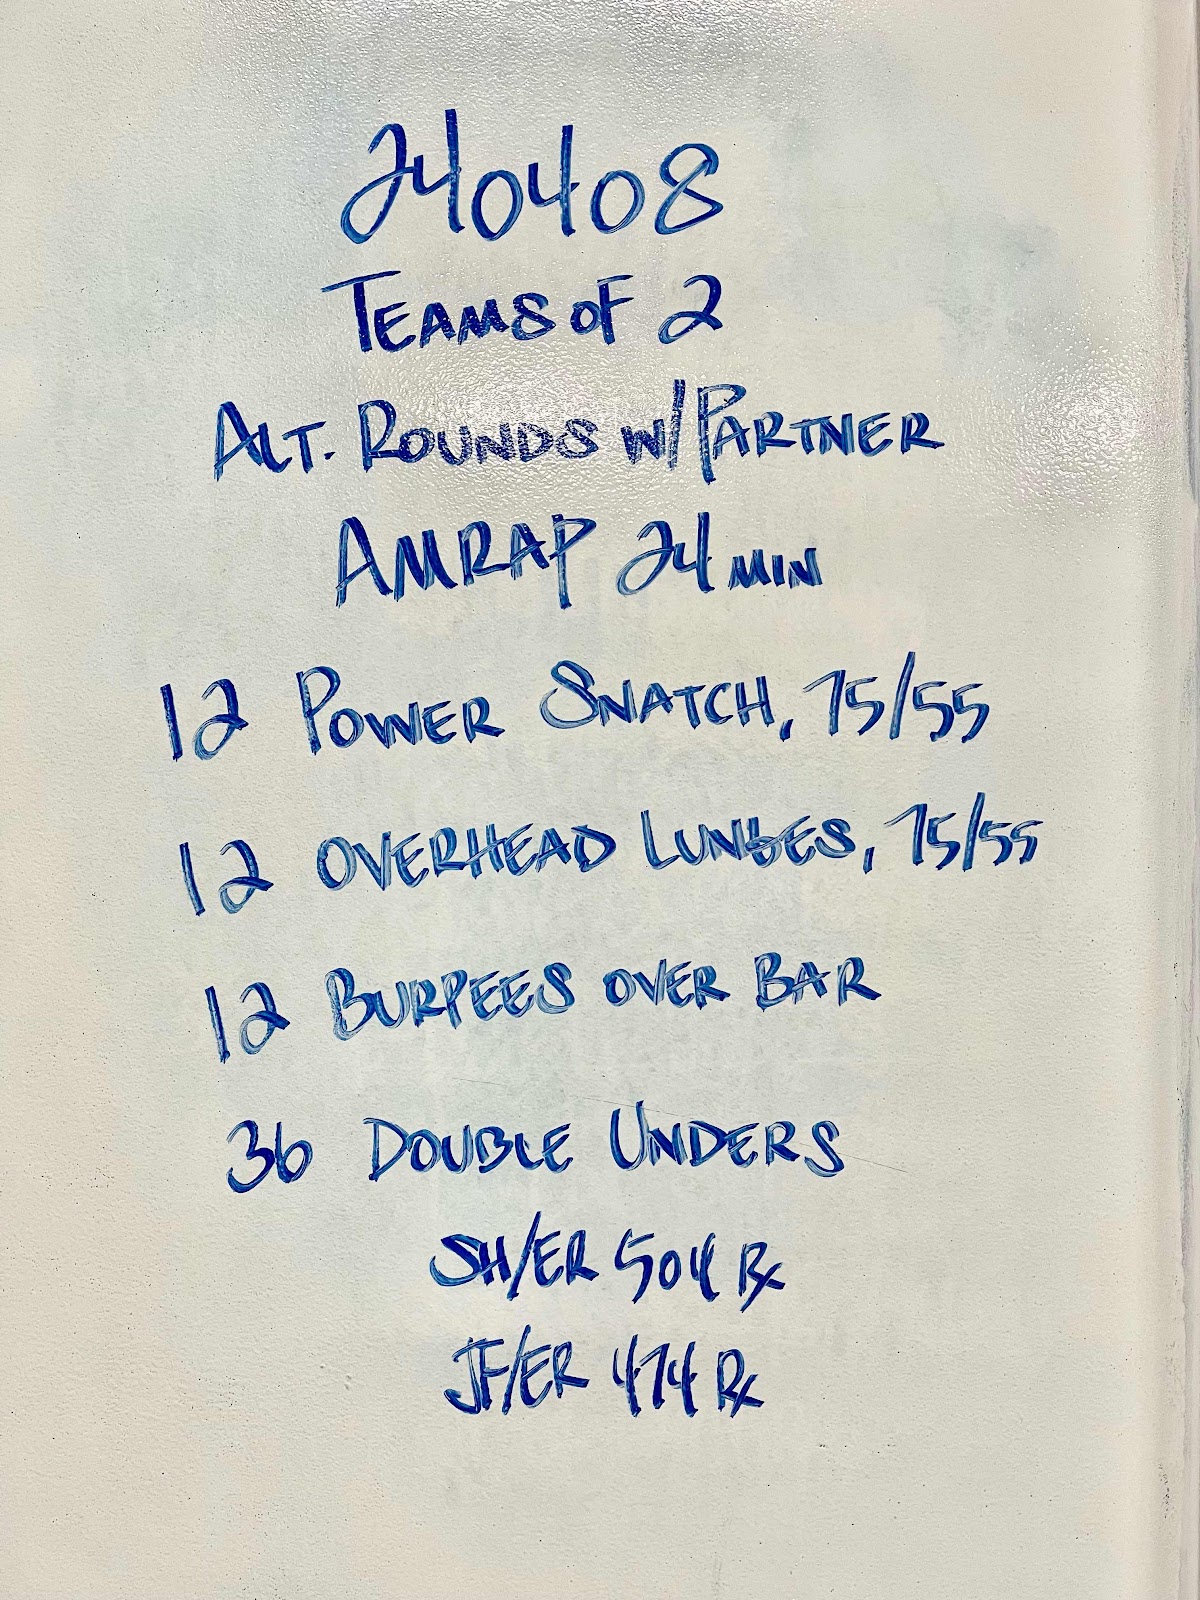 240408
TEAMS OF 2
ALT. ROUNDS W/PARTNER
AMRAP 24 MIN
12 POWER SNATCH, 75/55
12 OVERHEAD LUNGES, 75/55
12 BURPEES OVER BAR
36 DOUBLE UNDERS
SH/ER 504 Rx
JF/ER 474 Rx